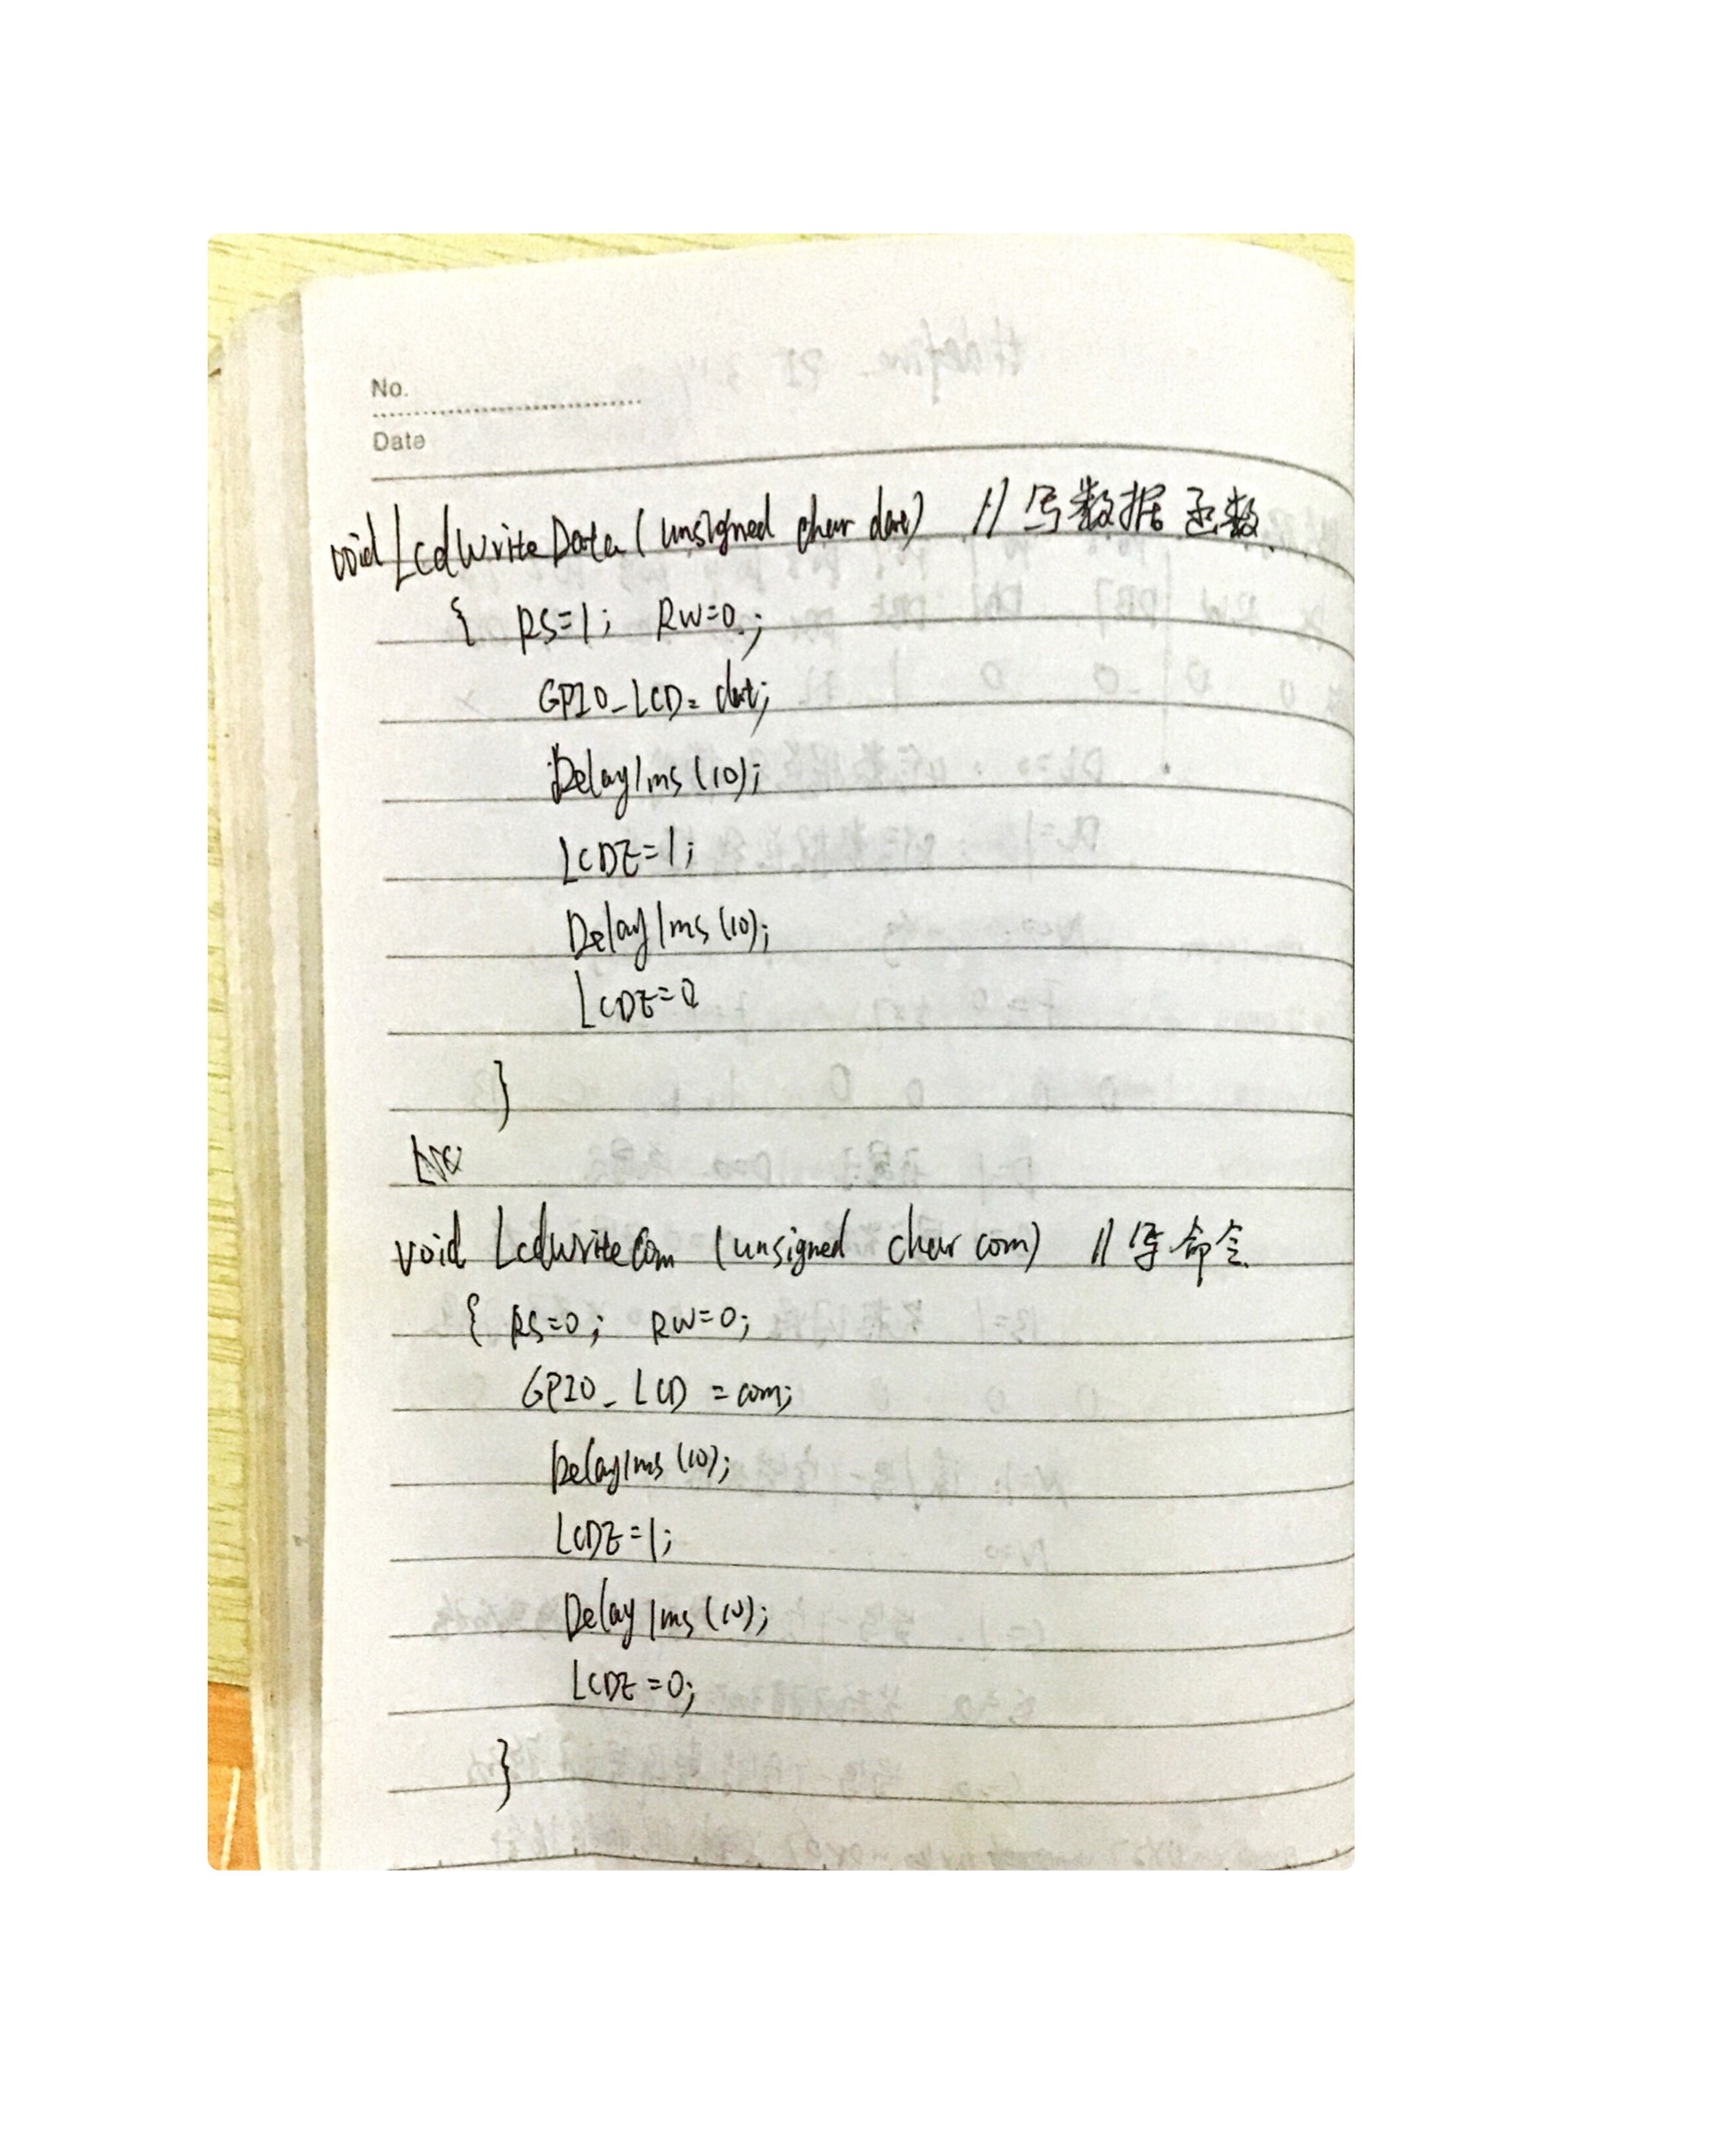 No.
Date
void LcdWriteData (unsigned char dat) // 写数据函数
{ RS=1; RW=0;
GPIO_LCD= dat;
Delay1ms(10);
LCDE=1;
Delay1ms(10);
LCDE=0
}
void LcdwriteCom (unsigned char com) // 写命令
{ RS=0; RW=0;
GPIO_LCD = com;
Delay1ms(10);
LCDE=1;
Delay1ms(10);
LCDE=0;
}